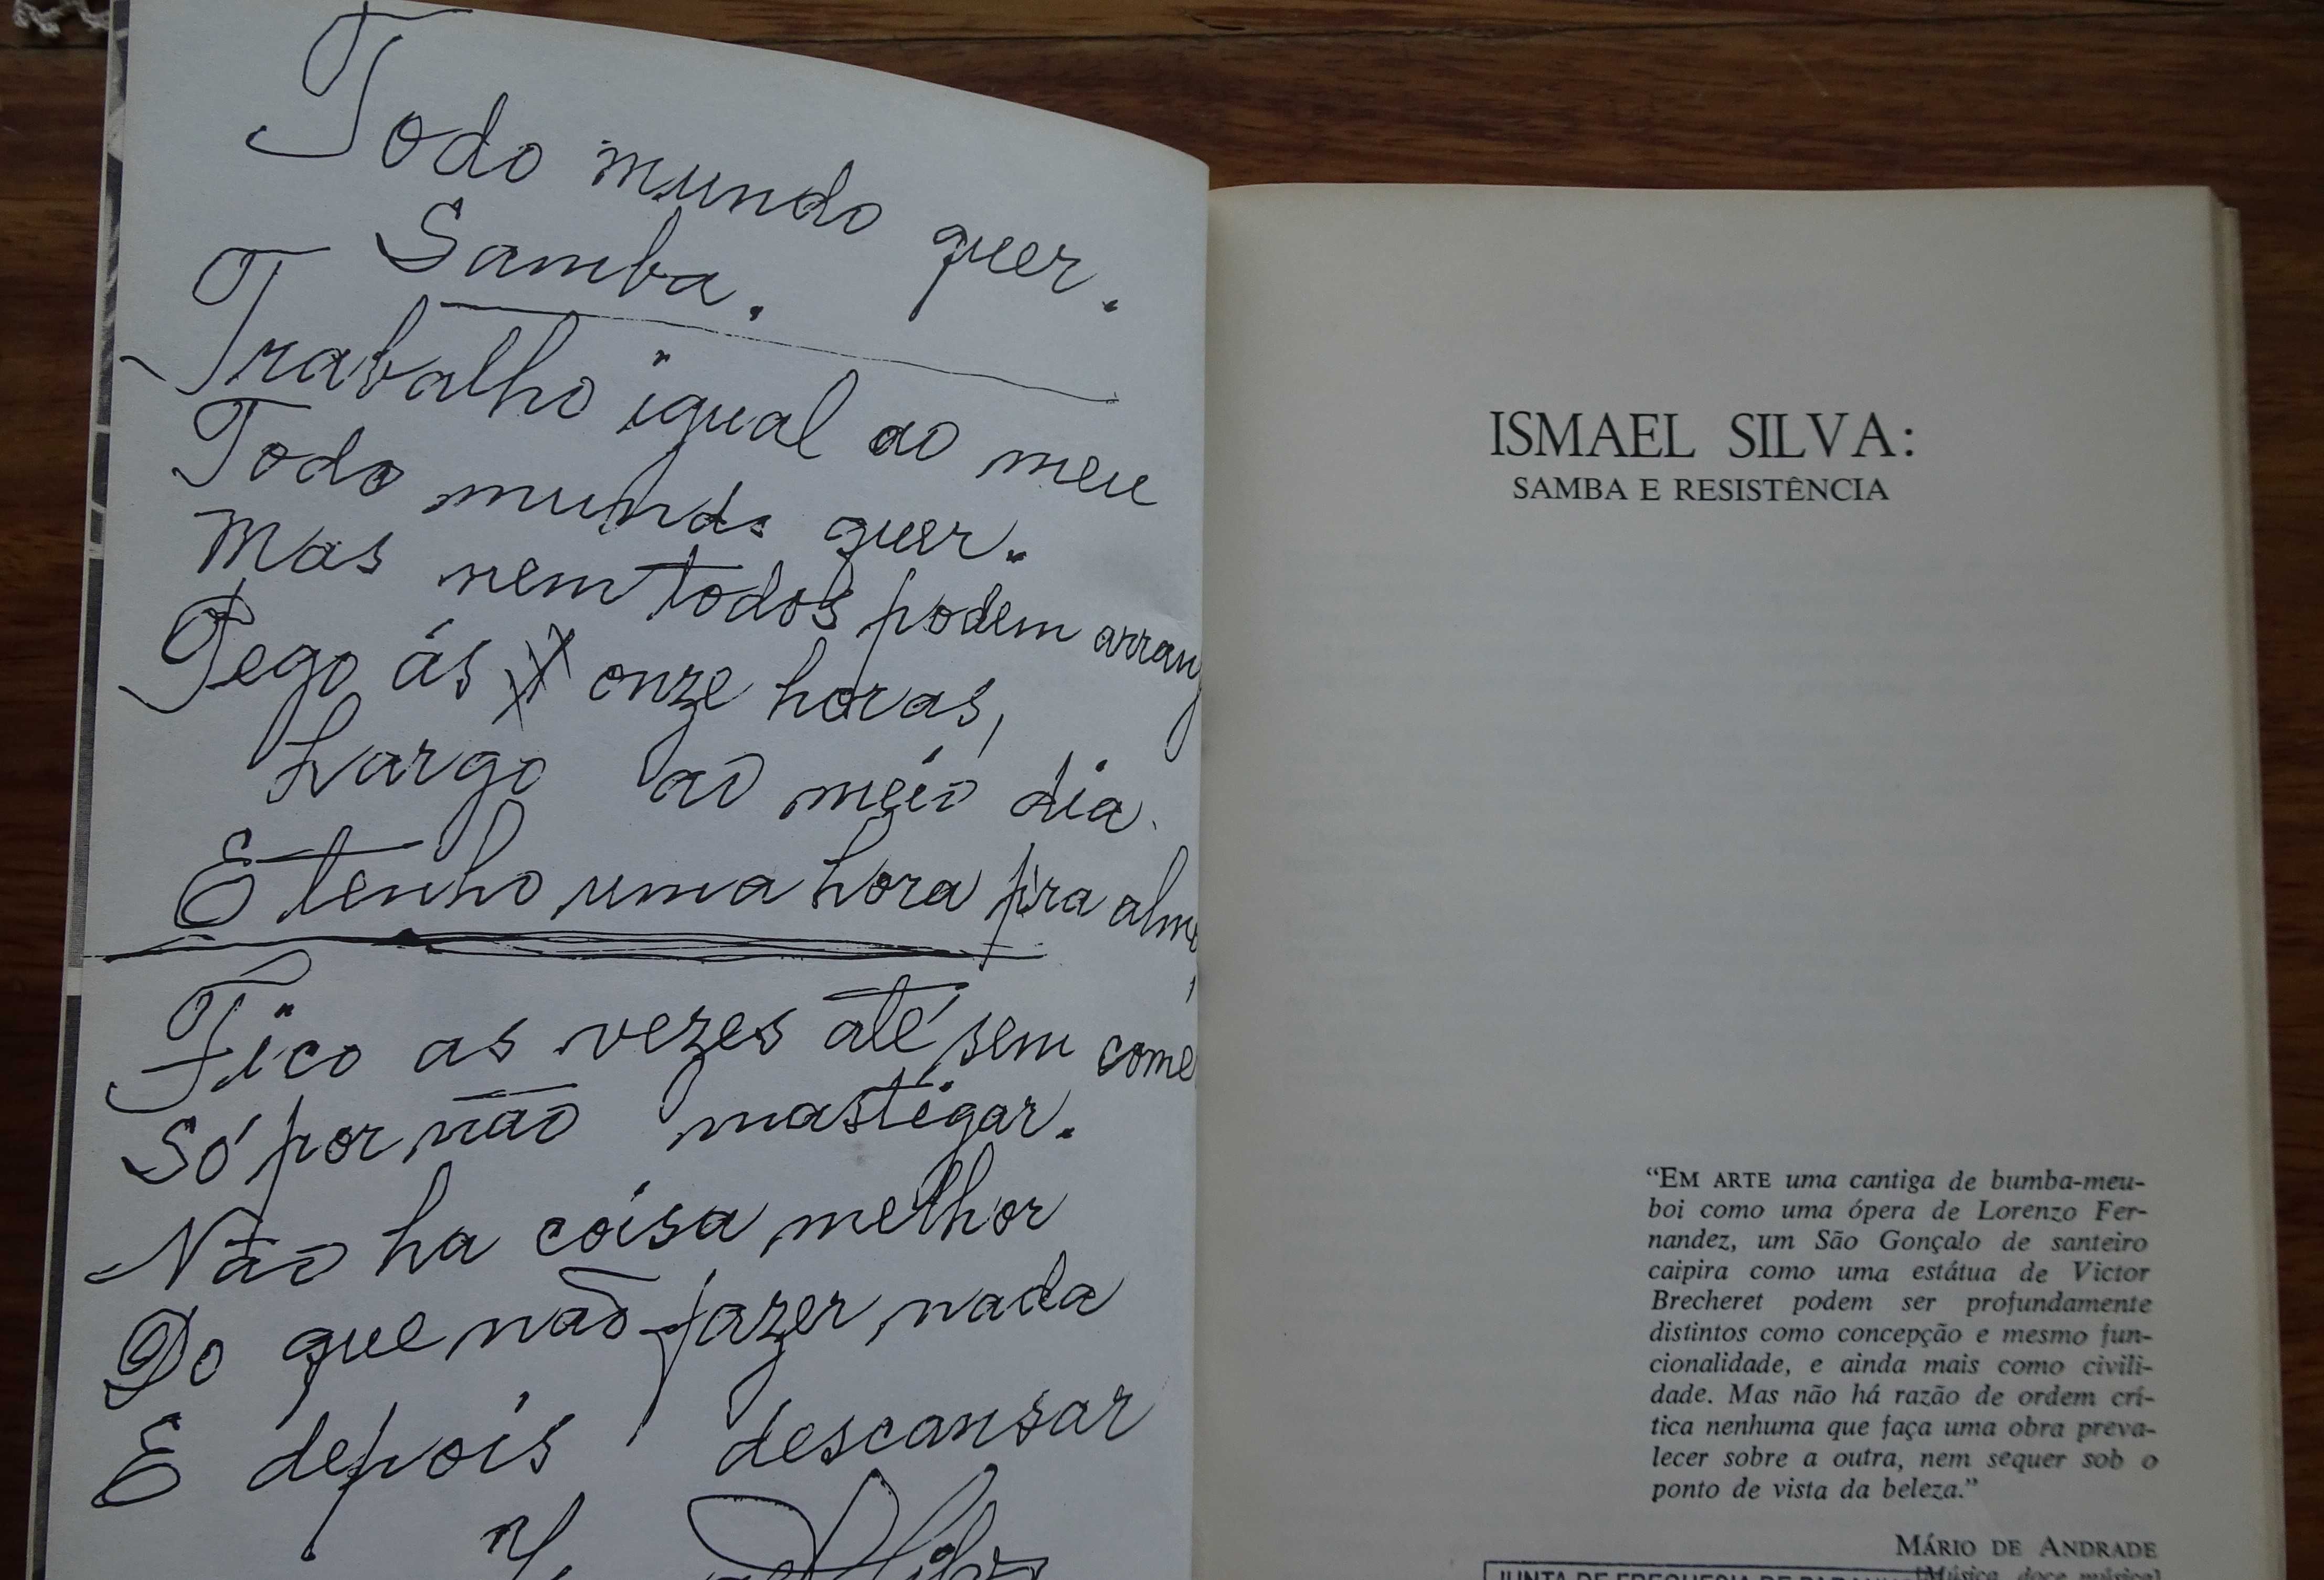 Todo mundo quer.
Samba.
Trabalho igual ao meu
Todo mundo quer.
Mas nem todos podem arranj
Pego ás onze horas,
Largo ao meio dia.
E tenho uma hora pra almo
Fico as vezes até sem come
Só por não mastigar.
Não ha coisa melhor
Do que não fazer nada
E depois descansar
ISMAEL SILVA:
SAMBA E RESISTÊNCIA
“EM ARTE uma cantiga de bumba-meu-
boi como uma ópera de Lorenzo Fer-
nandez, um São Gonçalo de santeiro
caipira como uma estátua de Victor
Brecheret podem ser profundamente
distintos como concepção e mesmo fun-
cionalidade, e ainda mais como civili-
dade. Mas não há razão de ordem crí-
tica nenhuma que faça uma obra preva-
lecer sobre a outra, nem sequer sob o
ponto de vista da beleza.”
MÁRIO DE ANDRADE
[Música, doce música]
JUNTA DE FREGUESIA DE